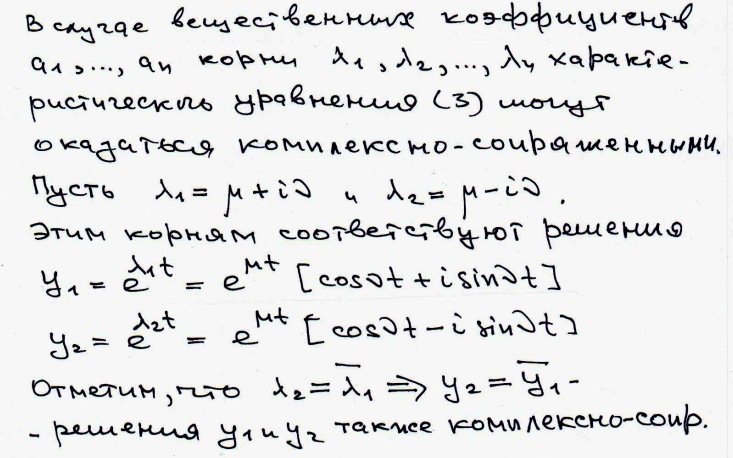 В случае вещественных коэффициентв
a₁,..., aₙ корни λ₁, λ₂,..., λₙ характе-
ристическго уравнения (3) могут
оказаться комплексно-сопряженными.
Пусть λ₁ = μ + i∂ и λ₂ = μ - i∂.
Этим корням соответствуют решения
y₁ = e^{λ₁t} = e^{μt} [cos∂t + i sin∂t]
y₂ = e^{λ₂t} = e^{μt} [cos∂t - i sin∂t]
Отметим, что λ₂ = λ̄₁ ⇒ y₂ = ȳ₁ -
- решения y₁ и y₂ также комплексно-сопр.